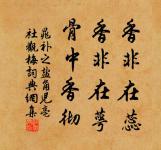 香非在蕊
香非在萼
骨中香徹
晁补之盐角見亳
社觀梅詞典網集